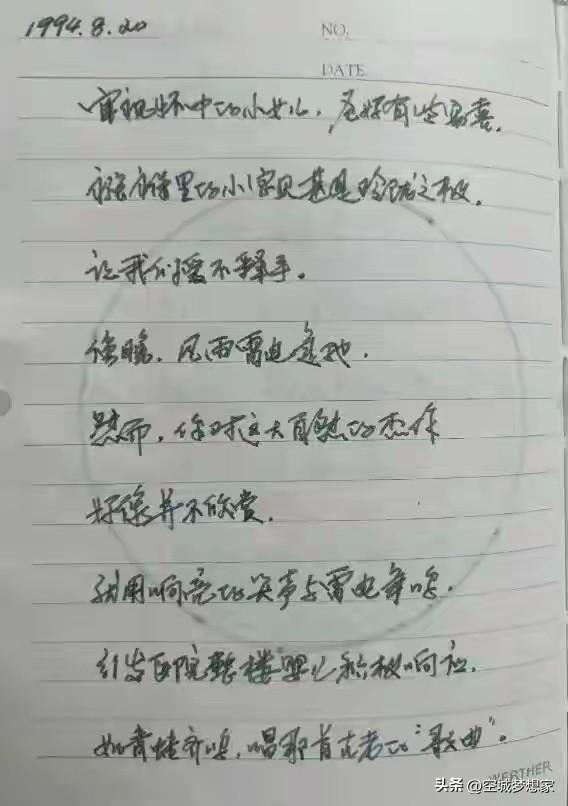 1994.8.20
NO.
DATE
审视怀中的小女儿,居然有些
里的小宝贝甚是玲珑之极,
让我们爱不释手。
傍晚,风雨雷电
然而,你对这大自然的杰作
好像并不欣赏,
就用响亮的哭声与雷电争鸣,
引发医院整楼婴儿积极响应,
如青蛙齐鸣,唱那首古老的“歌曲”。
WERTHER
头条 @空城梦想家